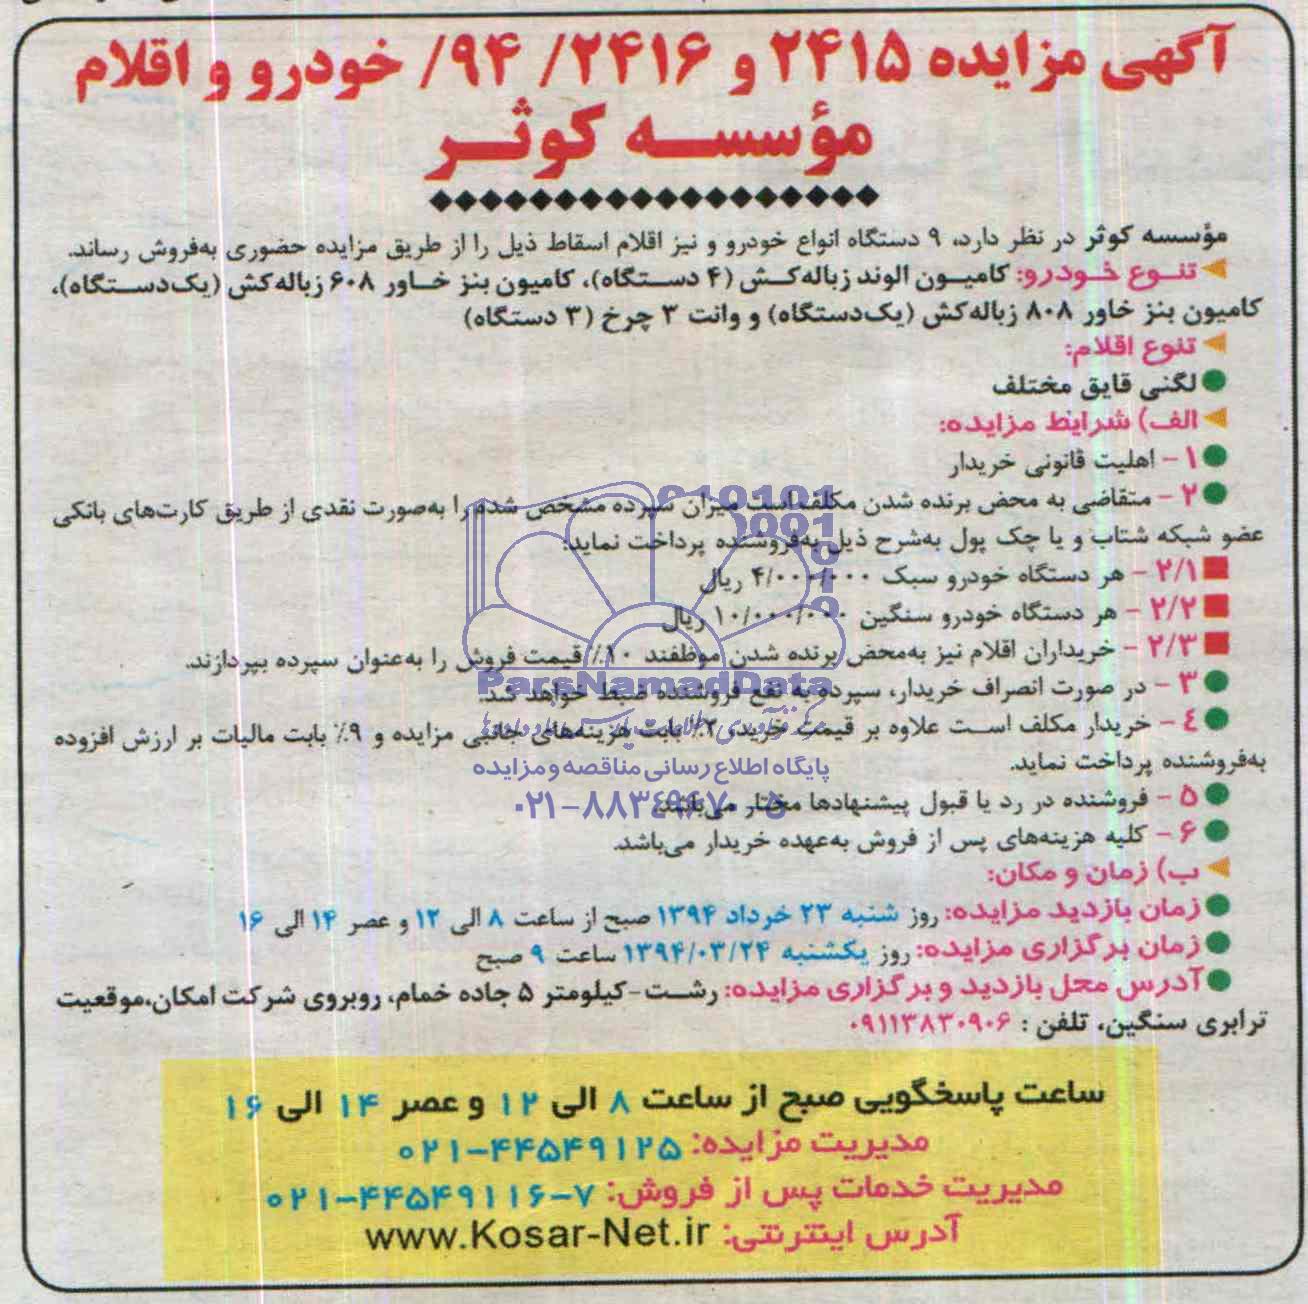 آگهی مزایده ۲۴۱۵ و ۲۴۱۶/ ۹۴/ خودرو و اقلام
مؤسسه کوثر
مؤسسه کوثر در نظر دارد، ۹ دستگاه انواع خودرو و نیز اقلام اسقاط ذیل را از طریق مزایده حضوری به‌فروش رساند.
تنوع خودرو: کامیون الوند زباله‌کش (۴ دستگاه)، کامیون بنز خاور ۶۰۸ زباله‌کش (یک‌دستگاه)،
کامیون بنز خاور ۸۰۸ زباله‌کش (یک‌دستگاه) و وانت ۳ چرخ (۳ دستگاه)
تنوع اقلام:
لگنی قایق مختلف
الف) شرایط مزایده:
۱- اهلیت قانونی خریدار
۲- متقاضی به محض برنده شدن مکلف است میزان سپرده مشخص شده را به‌صورت نقدی از طریق کارت‌های بانکی
عضو شبکه شتاب و یا چک پول به‌شرح ذیل به‌فروشنده پرداخت نماید:
۲/۱- هر دستگاه خودرو سبک ۴/۰۰۰/۰۰۰ ریال
۲/۲- هر دستگاه خودرو سنگین ۱۰/۰۰۰/۰۰۰ ریال
۲/۳- خریداران اقلام نیز به‌محض برنده شدن موظفند ۱۰٪ قیمت فروش را به‌عنوان سپرده بپردازند.
۳- در صورت انصراف خریدار، سپرده به نفع فروشنده ضبط خواهد شد.
۴- خریدار مکلف است علاوه بر قیمت خرید، ۲٪ بابت هزینه‌های جانبی مزایده و ۹٪ بابت مالیات بر ارزش افزوده
به‌فروشنده پرداخت نماید.
۵- فروشنده در رد یا قبول پیشنهادها مختار می‌باشد.
۶- کلیه هزینه‌های پس از فروش به‌عهده خریدار می‌باشد.
ب) زمان و مکان:
زمان بازدید مزایده: روز شنبه ۲۳ خرداد ۱۳۹۴ صبح از ساعت ۸ الی ۱۲ و عصر ۱۴ الی ۱۶
زمان برگزاری مزایده: روز یکشنبه ۱۳۹۴/۰۳/۲۴ ساعت ۹ صبح
آدرس محل بازدید و برگزاری مزایده: رشت-کیلومتر ۵ جاده خمام، روبروی شرکت امکان،موقعیت
ترابری سنگین، تلفن : ۰۹۱۱۳۸۳۰۹۰۶
ساعت پاسخگویی صبح از ساعت ۸ الی ۱۲ و عصر ۱۴ الی ۱۶
مدیریت مزایده: ۰۲۱-۴۴۵۴۹۱۲۵
مدیریت خدمات پس از فروش: ۷-۰۲۱-۴۴۵۴۹۱۱۶
آدرس اینترنتی: www.Kosar-Net.ir
ParsNamadData
پایگاه اطلاع رسانی مناقصه و مزایده
۰۲۱-۸۸۳۴۹۶۷۰-۵